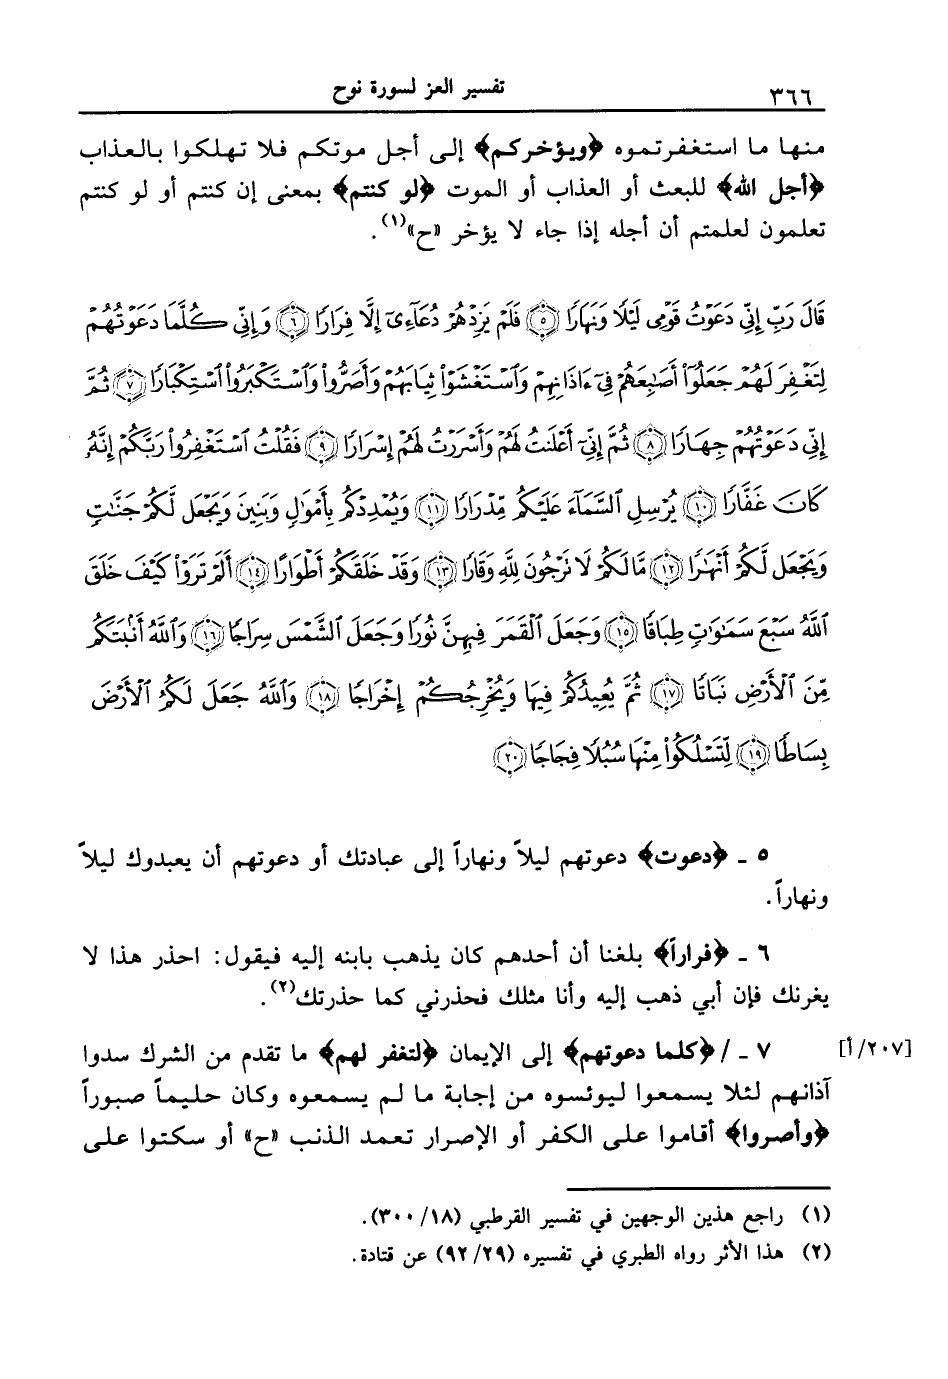 ٣٦٦ تفسير العز لسورة نوح
منها ما استغفرتموه ﴿ويؤخركم﴾ إلى أجل موتكم فلا تهلكوا بالعذاب
﴿أجل الله﴾ للبعث أو العذاب أو الموت ﴿لو كنتم﴾ بمعنى إن كنتم أو لو كنتم
تعلمون لعلمتم أن أجله إذا جاء لا يؤخر «ح»(١).
قَالَ رَبِّ إِنِّي دَعَوْتُ قَوْمِي لَيْلًا وَنَهَارًا ﴿٥﴾ فَلَمْ يَزِدْهُمْ دُعَآءِىٓ إِلَّا فِرَارًا ﴿٦﴾ وَإِنِّي كُلَّمَا دَعَوْتُهُمْ
لِتَغْفِرَ لَهُمْ جَعَلُوٓا۟ أَصَٰبِعَهُمْ فِىٓ ءَاذَانِهِمْ وَٱسْتَغْشَوْا۟ ثِيَابَهُمْ وَأَصَرُّوا۟ وَٱسْتَكْبَرُوا۟ ٱسْتِكْبَارًا ﴿٧﴾ ثُمَّ
إِنِّي دَعَوْتُهُمْ جِهَارًا ﴿٨﴾ ثُمَّ إِنِّىٓ أَعْلَنتُ لَهُمْ وَأَسْرَرْتُ لَهُمْ إِسْرَارًا ﴿٩﴾ فَقُلْتُ ٱسْتَغْفِرُوا۟ رَبَّكُمْ إِنَّهُۥ
كَانَ غَفَّارًا ﴿١٠﴾ يُرْسِلِ ٱلسَّمَآءَ عَلَيْكُم مِّدْرَارًا ﴿١١﴾ وَيُمْدِدْكُم بِأَمْوَٰلٍ وَبَنِينَ وَيَجْعَل لَّكُمْ جَنَّٰتٍ
وَيَجْعَل لَّكُمْ أَنْهَٰرًا ﴿١٢﴾ مَّا لَكُمْ لَا تَرْجُونَ لِلَّهِ وَقَارًا ﴿١٣﴾ وَقَدْ خَلَقَكُمْ أَطْوَارًا ﴿١٤﴾ أَلَمْ تَرَوْا۟ كَيْفَ خَلَقَ
ٱللَّهُ سَبْعَ سَمَٰوَٰتٍ طِبَاقًا ﴿١٥﴾ وَجَعَلَ ٱلْقَمَرَ فِيهِنَّ نُورًا وَجَعَلَ ٱلشَّمْسَ سِرَاجًا ﴿١٦﴾ وَٱللَّهُ أَنۢبَتَكُم
مِّنَ ٱلْأَرْضِ نَبَاتًا ﴿١٧﴾ ثُمَّ يُعِيدُكُمْ فِيهَا وَيُخْرِجُكُمْ إِخْرَاجًا ﴿١٨﴾ وَٱللَّهُ جَعَلَ لَكُمُ ٱلْأَرْضَ
بِسَاطًا ﴿١٩﴾ لِّتَسْلُكُوا۟ مِنْهَا سُبُلًا فِجَاجًا ﴿٢٠﴾
٥ ـ ﴿دعوت﴾ دعوتهم ليلاً ونهاراً إلى عبادتك أو دعوتهم أن يعبدوك ليلاً
ونهاراً.
٦ ـ ﴿فراراً﴾ بلغنا أن أحدهم كان يذهب بابنه إليه فيقول: احذر هذا لا
يغرنك فإن أبي ذهب إليه وأنا مثلك فحذرني كما حذرتك(٢).
[٢٠٧/أ] ٧ ـ /﴿كلما دعوتهم﴾ إلى الإيمان ﴿لتغفر لهم﴾ ما تقدم من الشرك سدوا
آذانهم لئلا يسمعوا ليوئسوه من إجابة ما لم يسمعوه وكان حليماً صبوراً
﴿وأصروا﴾ أقاموا على الكفر أو الإصرار تعمد الذنب «ح» أو سكتوا على
(١) راجع هذين الوجهين في تفسير القرطبي (١٨/ ٣٠٠).
(٢) هذا الأثر رواه الطبري في تفسيره (٢٩/ ٩٢) عن قتادة.